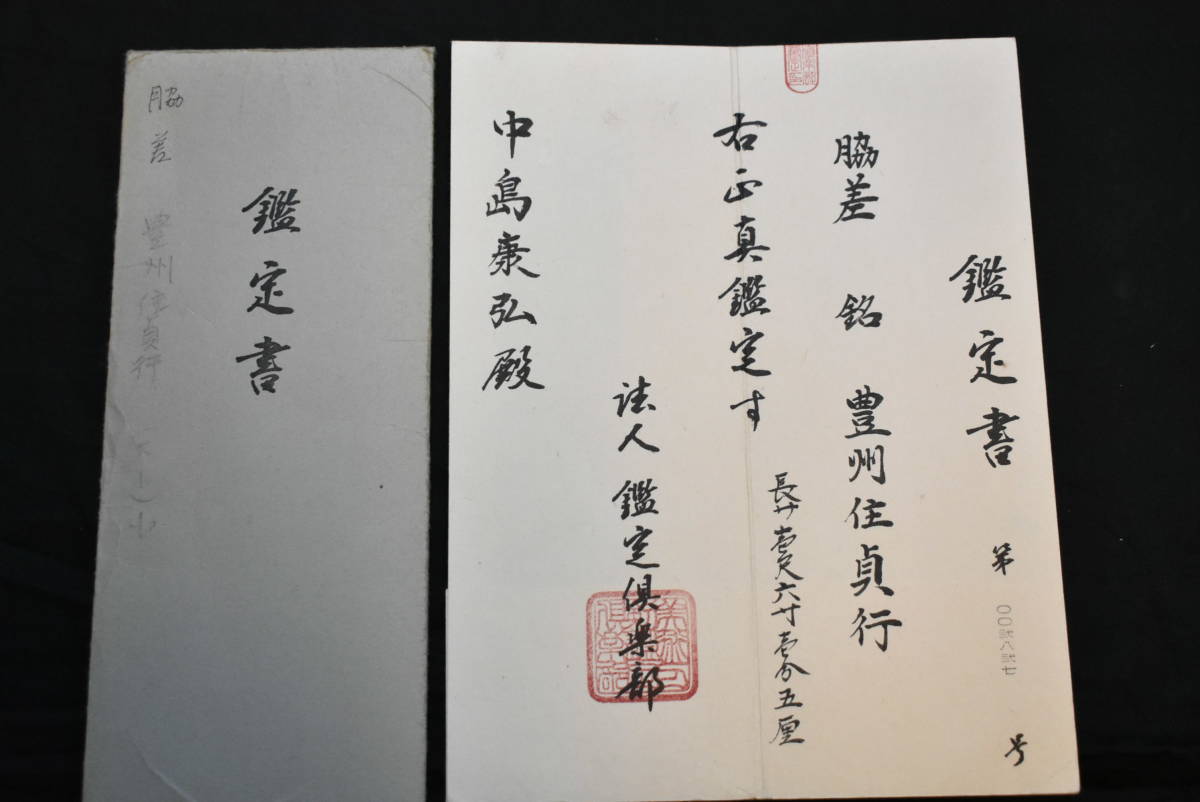 鑑定書
第〇〇弐八弐七号
脇差 銘 豊州住貞行
長サ壱尺六寸壱分五厘
右正真鑑定す
法人 鑑定倶楽部
中島康弘殿
鑑定書
脇差 豊州住貞行